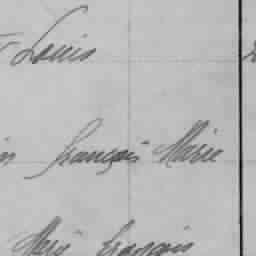 Louis
François Marie
Marie François